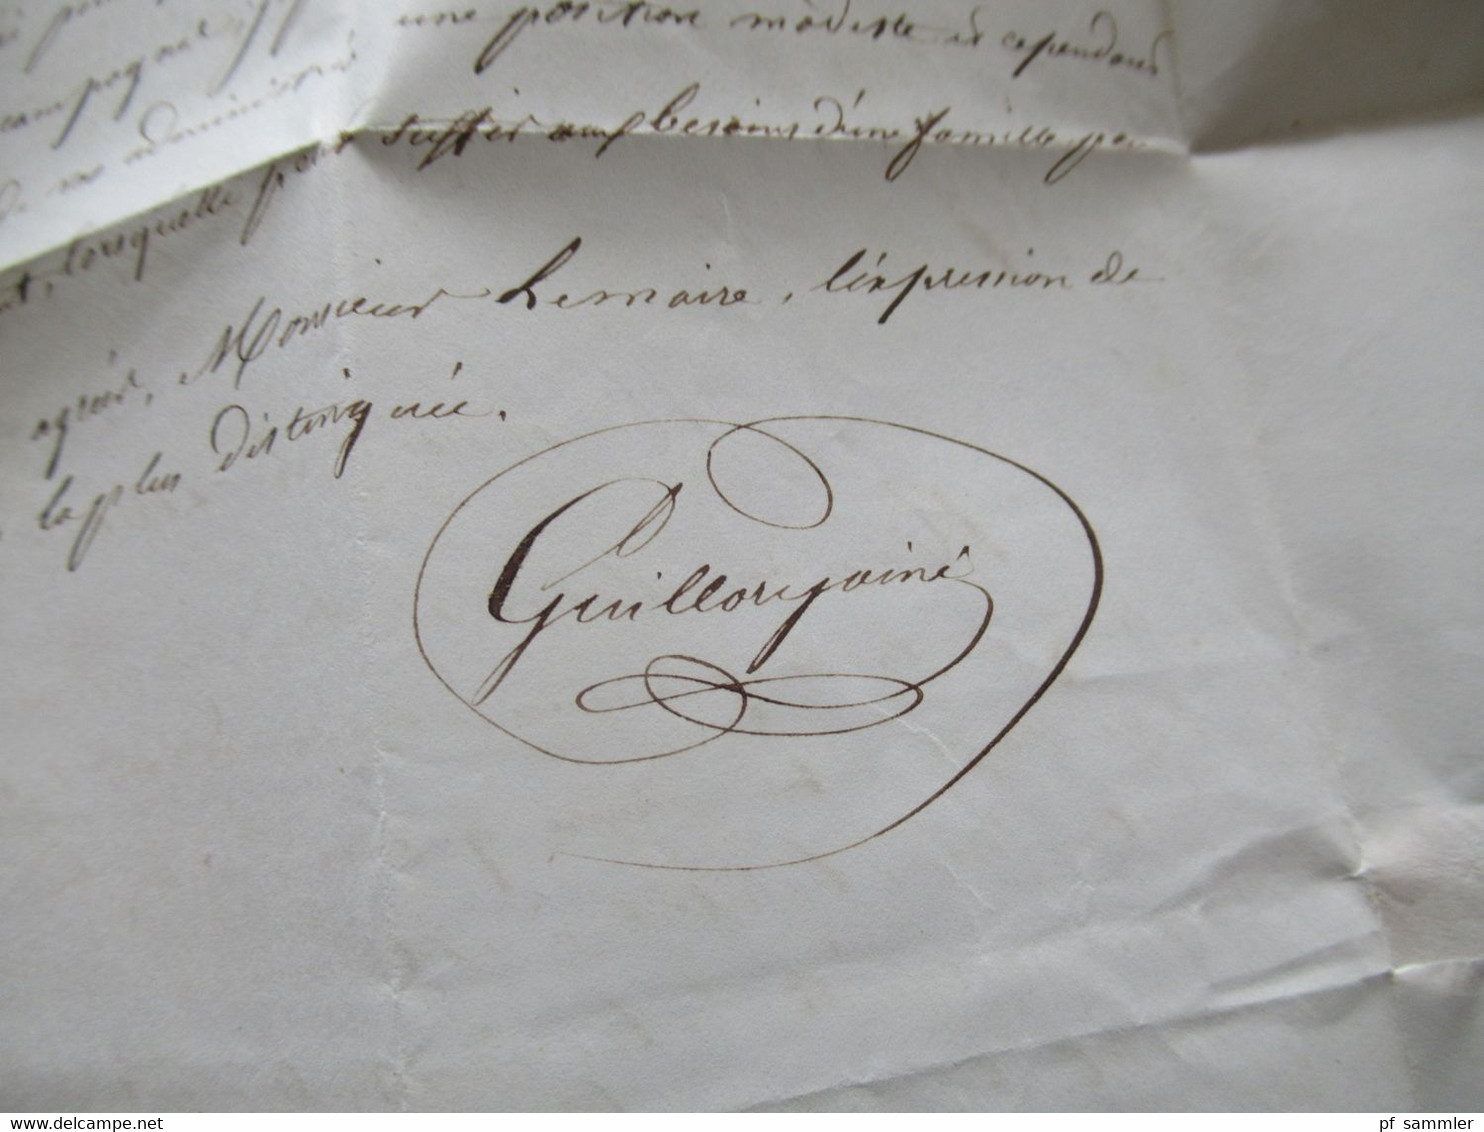 une position modeste et cependant
campagne
lorsquelle pour suffir aux besoins d'une famille
agréér, Monsieur Lemaire, l'expression de
la plus distinguée.
Guillory ainé
www.delcampe.net
pf sammler